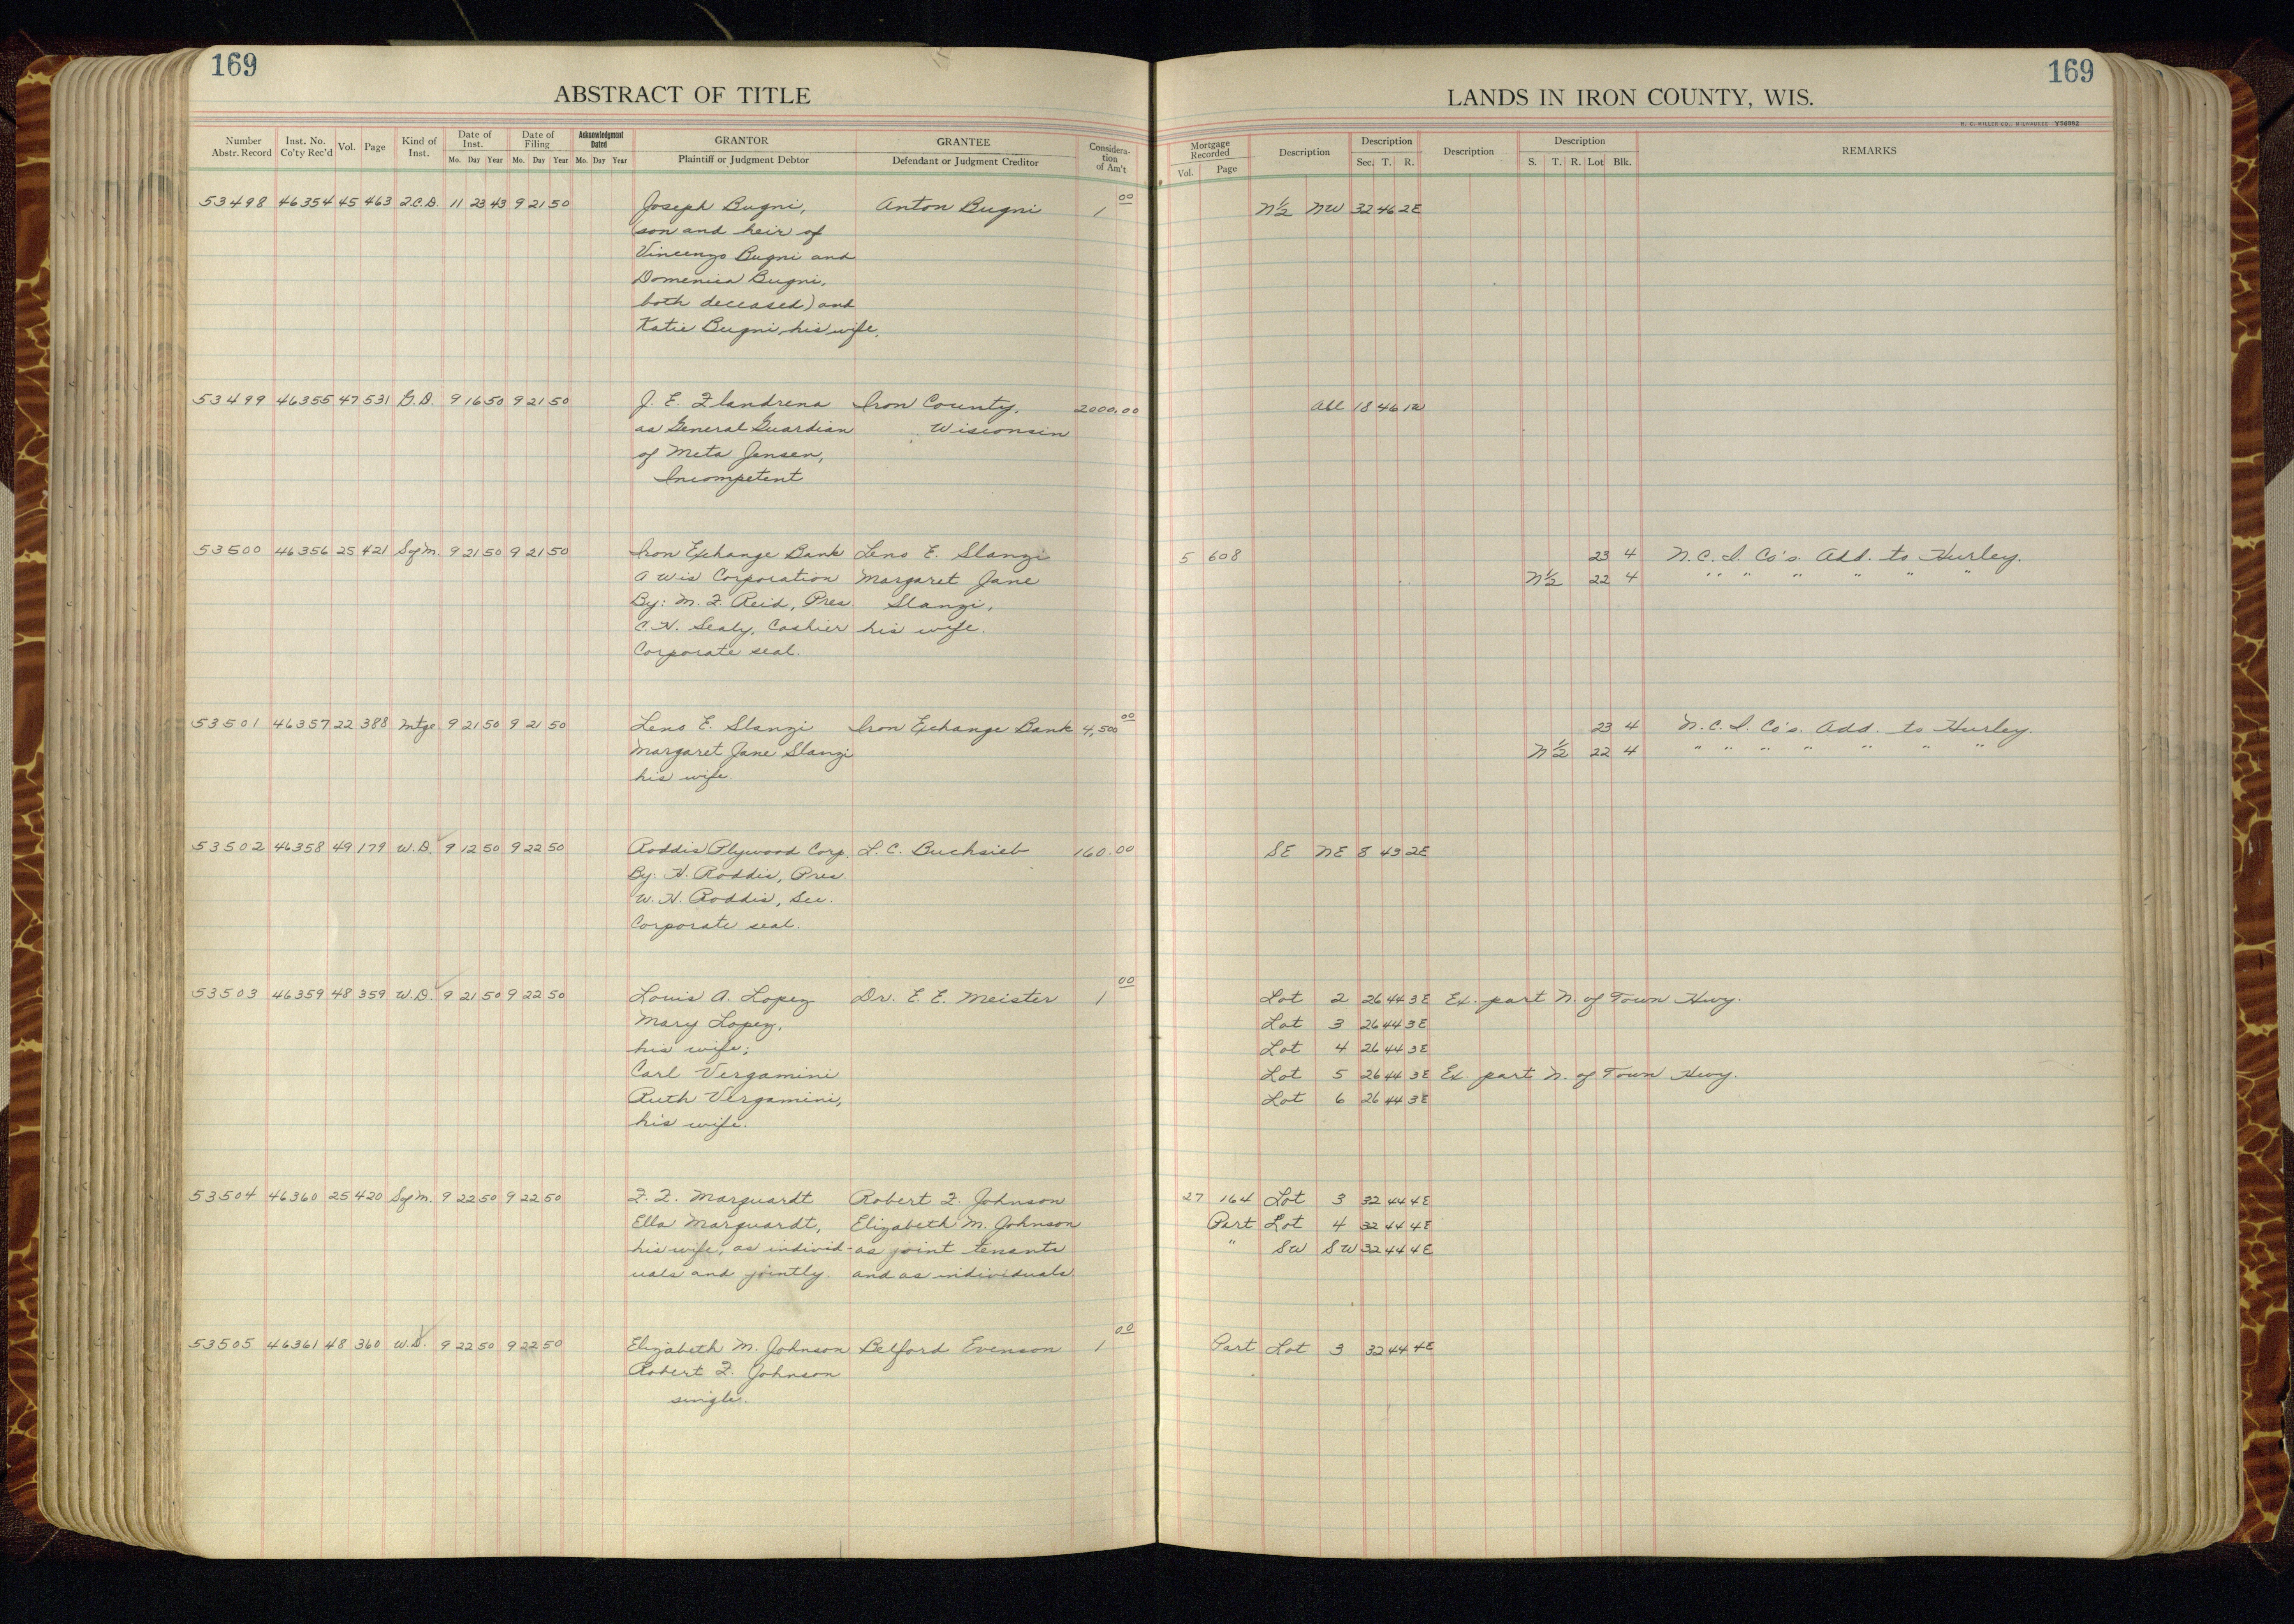 169
ABSTRACT OF TITLE
Number Abstr. Record Inst. No. Co'ty Rec'd Vol. Page Kind of Inst. Date of Inst. Mo. Day Year Date of Filing Mo. Day Year Acknowledgment Dated Mo. Day Year GRANTOR Plaintiff or Judgment Debtor GRANTEE Defendant or Judgment Creditor Considera-tion of Am't
53498 46354 45 463 Q.C.D. 11 23 43 9 21 50 Joseph Bugni, Anton Bugni 1 00
(son and heir of
Vincenzo Bugni and
Domenica Bugni,
both deceased) and
Katie Bugni, his wife.
53499 46355 47 531 G.D. 9 16 50 9 21 50 J. E. Flandrena Iron County, 2000.00
as General Guardian Wisconsin
of Meta Jensen,
Incompetent
53500 46356 25 421 Sg/m. 9 21 50 9 21 50 Iron Exchange Bank Leno E. Slanzi
A Wis Corporation Margaret Jane
By: M. F. Reid, Pres. Slanzi,
C. H. Sealy, Cashier his wife.
Corporate seal.
53501 46357 22 388 Mtge. 9 21 50 9 21 50 Leno E. Slanzi Iron Exchange Bank 4,500 00
Margaret Jane Slanzi
his wife.
53502 46358 49 179 W.D. 9 12 50 9 22 50 Roddis Plywood Corp. L. C. Buchsieb 160.00
By: H. Roddis, Pres.
W. H. Roddis, Sec.
Corporate seal.
53503 46359 48 359 W.D. 9 21 50 9 22 50 Louis A. Lopez Dr. E. E. Meister 1 00
Mary Lopez,
his wife;
Carl Vergamini
Ruth Vergamini,
his wife.
53504 46360 25 420 Sg/m. 9 22 50 9 22 50 F. F. Marquardt Robert F. Johnson
Ella Marquardt, Elizabeth M. Johnson
his wife, as individ- as joint tenants
uals and jointly. and as individuals.
53505 46361 48 360 W.D. 9 22 50 9 22 50 Elizabeth M. Johnson Belford Evenson 1 00
Robert F. Johnson
single.
169
LANDS IN IRON COUNTY, WIS.
H. C. MILLER CO., MILWAUKEE Y56952
Mortgage Recorded Vol. Page Description Description Sec. T. R. Description Description S. T. R. Lot Blk. REMARKS
N½ NW 32 46 2E
All 18 46 1W
5 608 23 4 N. C. I. Co's. Add. to Hurley.
N½ 22 4 " " " " " " "
23 4 N. C. I. Co's. Add. to Hurley.
N½ 22 4 " " " " " " "
SE NE 8 43 2E
Lot 2 26 44 3E Ex. part N. of Town Hwy.
Lot 3 26 44 3E
Lot 4 26 44 3E
Lot 5 26 44 3E Ex. part N. of Town Hwy.
Lot 6 26 44 3E
27 164 Lot 3 32 44 4E
Part Lot 4 32 44 4E
" SW SW 32 44 4E
Part Lot 3 32 44 4E